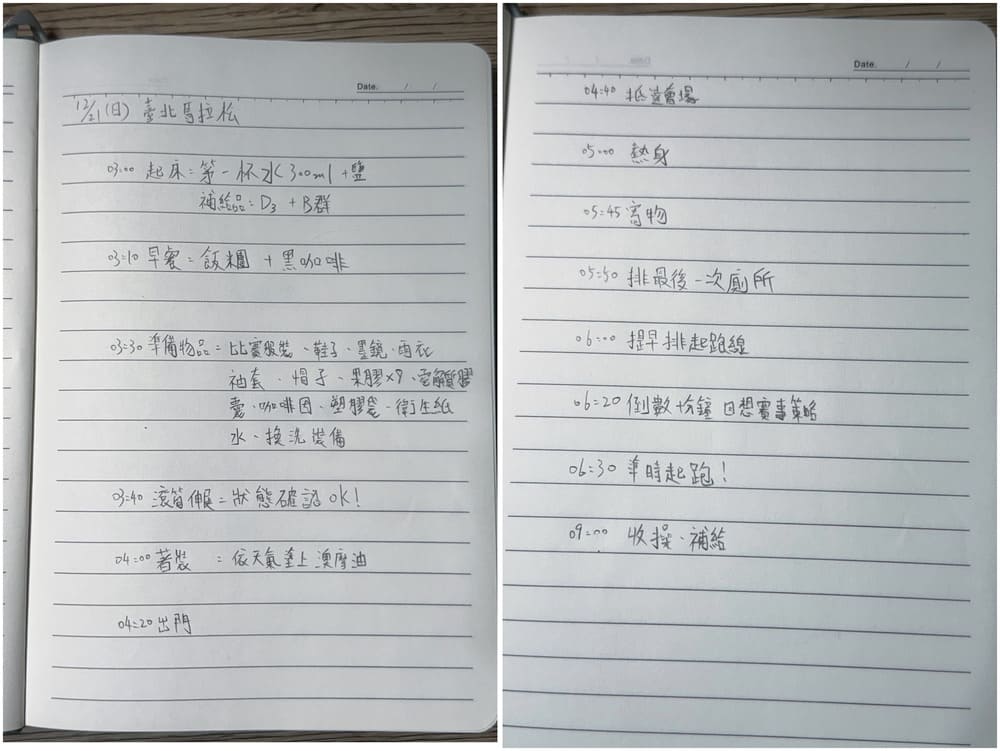 Date. / /
12/21(日) 臺北馬拉松
03:00 起床:第一杯水300ml+鹽
補給品:D3 + B群
03:10 早餐:飯糰 + 黑咖啡
03:30 準備物品:比賽服裝、鞋子、墨鏡、雨衣
袖套、帽子、果膠x7、電解質膠
囊、咖啡因、塑膠袋、衛生紙
水、換洗裝備
03:40 滾筒伸展:狀態確認OK!
04:00 著裝 :依天氣塗上澳摩油
04:20 出門
Date. / /
04:40 抵達會場
05:00 熱身
05:45 寄物
05:50 排最後一次廁所
06:00 提早排起跑線
06:20 倒數十分鐘 回想賽事策略
06:30 準時起跑!
09:00 收操、補給